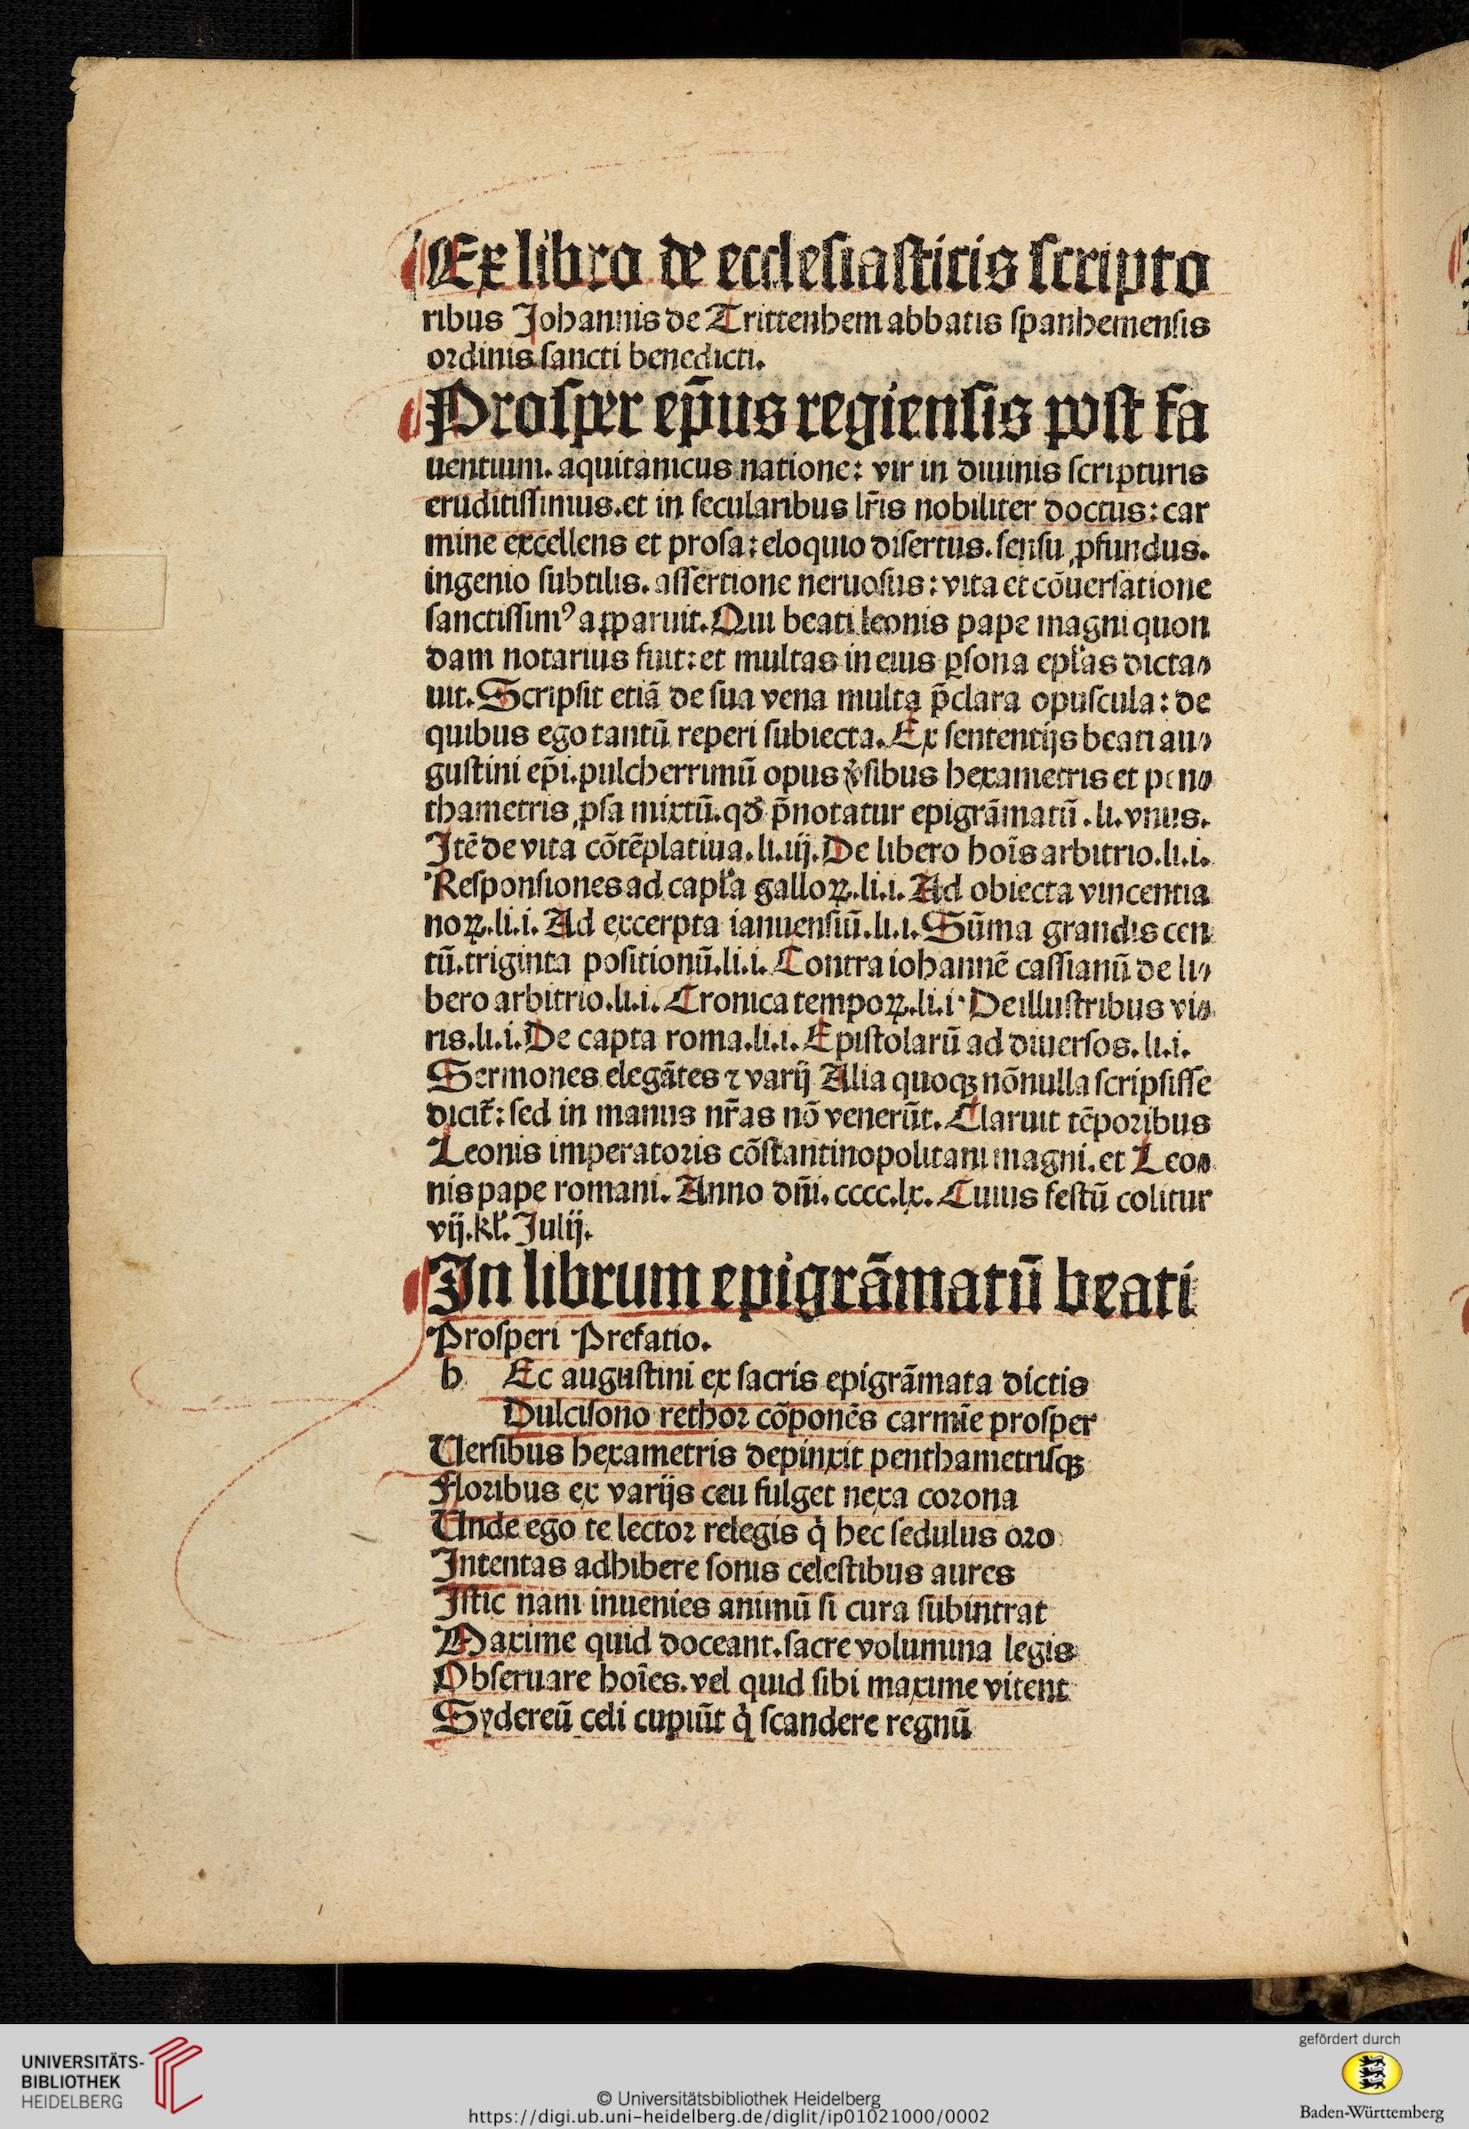 Ex libro de ecclesiasticis scripto
ribus Johannis de Trittenhem abbatis spanhemensis
ordinis sancti benedicti.
Prosper ep̄us regiensis post fa
uentium. aquitanicus natione: vir in diuinis scripturis
eruditissimus. et in secularibus lr̄is nobiliter doctus: car
mine excellens et prosa: eloquio disertus. sensu ꝓfundus.
ingenio subtilis. assertione neruosus: vita et cōuersatione
sanctissimꝰ apparuit. Qui beati leonis pape magni quon
dam notarius fuit: et multas in eius ꝑsona epl̄as dicta⸗
uit. Scripsit etiā de sua vena multa p̄clara opuscula: de
quibus ego tantū reperi subiecta. Ex sententijs beati au⸗
gustini ep̄i. pulcherrimū opus v̓sibus hexametris et pen⸗
thametris ꝓsa mixtū. qđ p̄notatur epigrāmatū. li. vnus.
Itē de vita cōtēplatiua. li. iij. De libero hoīs arbitrio. li. i.
Responsiones ad capl̄a galloꝝ. li. i. Ad obiecta vincentia
noꝝ. li. i. Ad excerpta ianuensiū. li. i. Sūma grandis cen
tū. triginta positionū. li. i. Contra iohannē cassianū de li⸗
bero arbitrio. li. i. Cronica tempoꝝ. li. i. De illustribus vi⸗
ris. li. i. De capta roma. li. i. Epistolarū ad diuersos. li. i.
Sermones elegātes ⁊ varij Alia quoqꝫ nōnulla scripsisse
dicit̄: sed in manus nr̄as nō venerūt. Claruit tēporibus
Leonis imperatoris cōstantinopolitani magni. et Leo⸗
nis pape romani. Anno dn̄i. cccc. lx. Cuius festū colitur
vij. kl̄. Julij.
In librum epigrāmatū beati
Prosperi Prefatio.
h Ec augustini ex sacris epigrāmata dictis
Dulcisono rethor cōponēs carmīe prosper
Uersibus hexametris depinxit penthametrisqꝫ
Floribus ex varijs ceu fulget nexa corona
Unde ego te lector relegis q̇ hec sedulus oro
Intentas adhibere sonis celestibus aures
Istic nam inuenies animū si cura subintrat
Maxime quid doceant. sacre volumina legis
Obseruare hoīes. vel quid sibi maxime vitent
Sydereū celi cupiūt q̇ scandere regnū
UNIVERSITÄTS-
BIBLIOTHEK
HEIDELBERG
© Universitätsbibliothek Heidelberg
https://digi.ub.uni-heidelberg.de/diglit/ip01021000/0002
gefördert durch
Baden-Württemberg